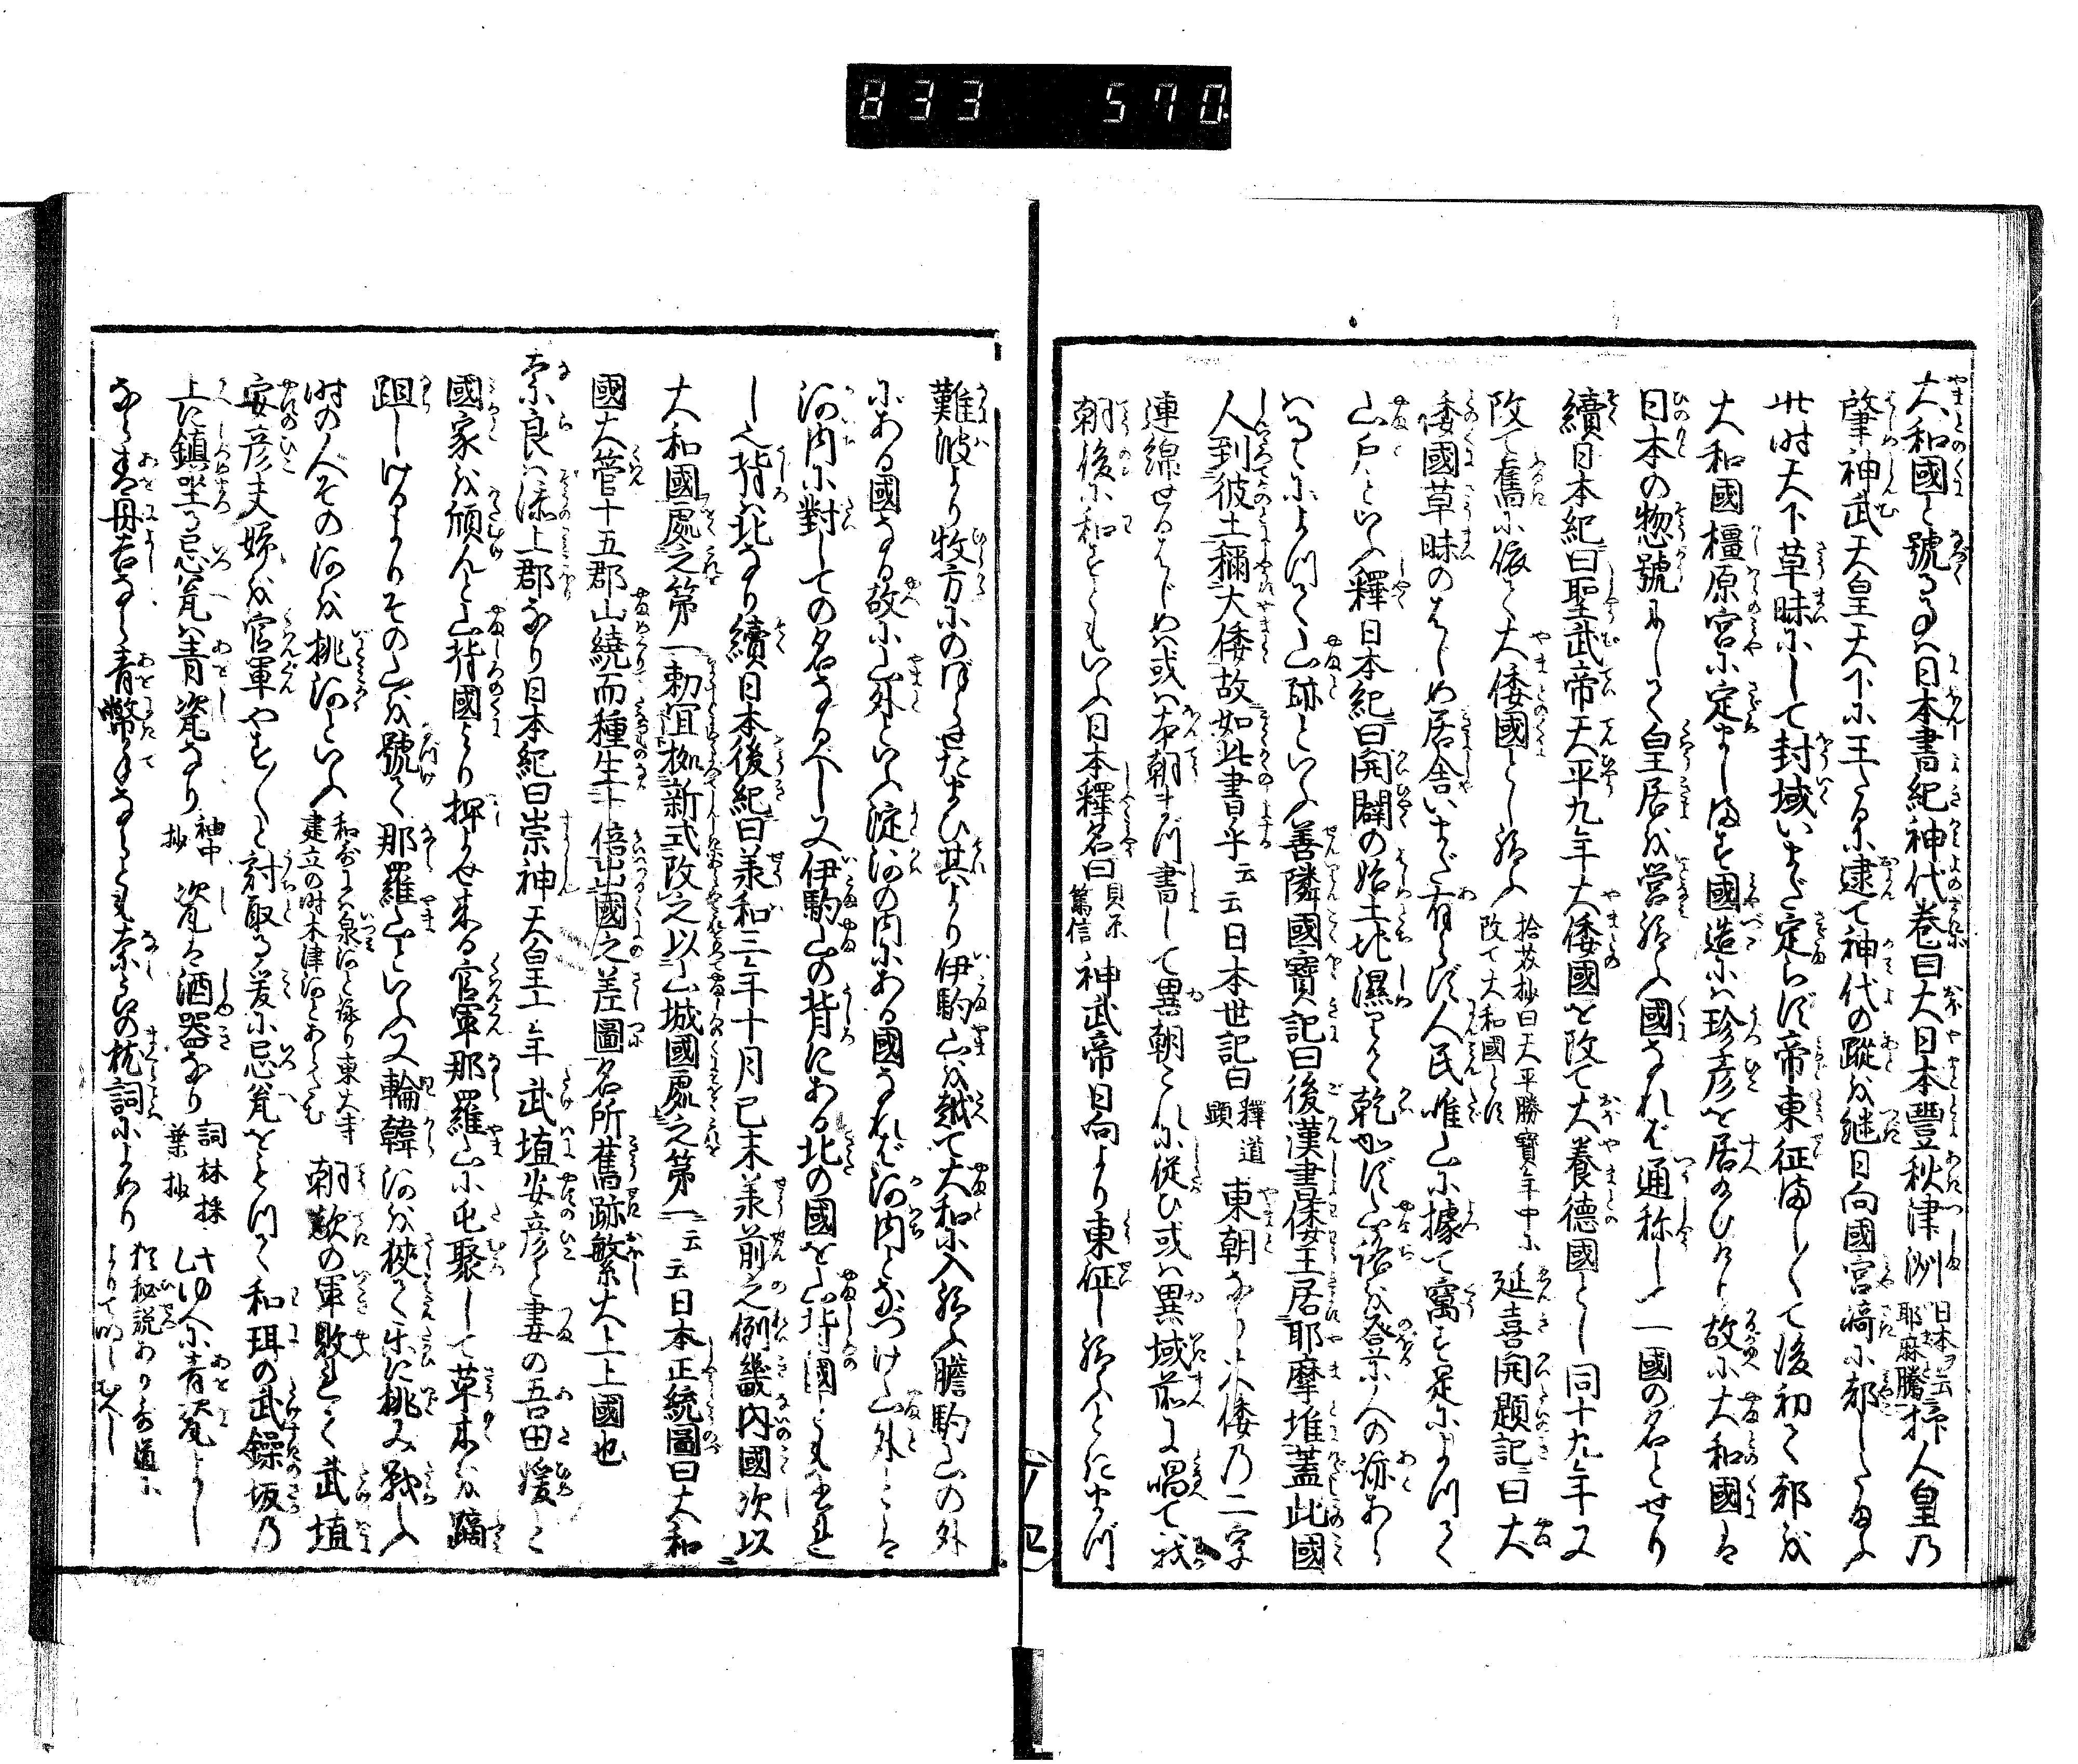 833 570
大和國と號る事ハ日本書紀神代巻曰大日本豐秋津洲 日本ヲ云耶麻騰 抑人皇乃
肇神武天皇天下に王たるに逮て神代の蹤を継日向國宮﨑に都したまふ
此時天下草昧にして封域いまだ定らず帝東征まし〳〵て後初て都を
大和國橿原宮に定まします國造に珍彦を居給ひけり故に大和國は
日本の惣號にして皇居を営給ふ國なれば通称し一國の名とせり
續日本紀曰聖武帝天平九年大倭國を改て大養德國とし同十九年又
改て舊に依て大倭國とし給ふ 拾芥抄曰天平勝寳年中に改て大和國とす 延喜開題記曰大
倭國草昧のはじめ居舎いまだ有らず人民唯山に據て窟す是によつて
山戸といふ釋日本紀曰開闢の始土地濕して乾かず山谷を登りて人の跡あら
はるゝによつて山跡といふ善隣國寳記曰後漢書倭王居耶摩堆蓋此國
人到彼土稱大倭故如此書乎云云日本世記曰 釋道顕 東朝なり大倭乃二字
連綿せるはじめハ或ハ本朝まづ書して異朝これに従ひ或ハ異域前に唱て我
朝後に和すともいふ日本釋名曰 貝原篤信 神武帝日向より東征し給ふときにまづ
難波より牧方にのぼらせたまひ其より伊駒山を越て大和に入給ふ膽駒山の外
にある國なる故に山外といふ淀河の内にある國なれば河内となづけ山外とは
河内に對しての名なるべし又伊駒山の背にある北の國を山背國とも出せ
し之背ハ北なり續日本後紀曰羕和三年十月已未羕前之例畿内國次以
大和國處之第一勅冝拠新式改之以山城國處之第一云云日本正統圖曰大和
國大管十五郡山繞而種生十倍出國之差圖名所舊跡繁大上上國也
奈良ハ添上郡なり日本紀曰崇神天皇十年武埴安彦と妻の吾田媛と
國家を傾んと山背國より押よせ来る官軍那羅山に屯聚して草木を蹢
跙しけるよりその山を號て那羅山といふ又輪韓河を挾て乐に挑み戦ふ
時の人その河を挑河といふ 和ゟ又ハ泉河と詠り東大寺建立の時木津河とあらたむ 朝敵の軍敗せて武埴
安彦夫婦を官軍やす〳〵と討取る爰に忌瓮をもつて和珥の武鐰坂乃
上に鎮坐る忌瓮ハ青瓷なり 袖中抄 瓷は酒器なり 詞林採葉抄 此ゆへに青瓷よし
なら青丹吉なら青幣よしならとも奈良の枕詞によめり 猶秘説あり哥道によりて明しむべし